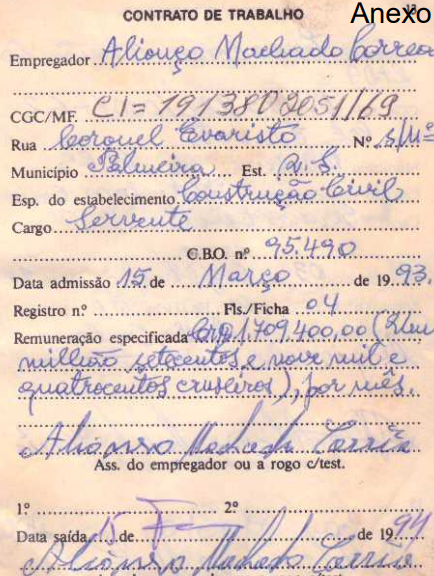 CONTRATO DE TRABALHO
Anexo
13
Empregador Alionço Machado Correa
CGC/MF. CI = 191380 2051/69
Rua Coronel Evaristo Nº s/nº
Município Palmeira Est. R.S.
Esp. do estabelecimento Construção Civil
Cargo Servente
C.B.O. nº 95.490
Data admissão 15 de Março de 1993.
Registro n.º Fls./Ficha 04
Remuneração especificada Cr$ 1.709.400,00 (Hum
milhão setecentos e nove mil e
quatrocentos cruzeiros), por mês.
Machado Corrêa
Ass. do empregador ou a rogo c/test.
1º 2º
Data saída 15 de de 1994
Machado Corrêa